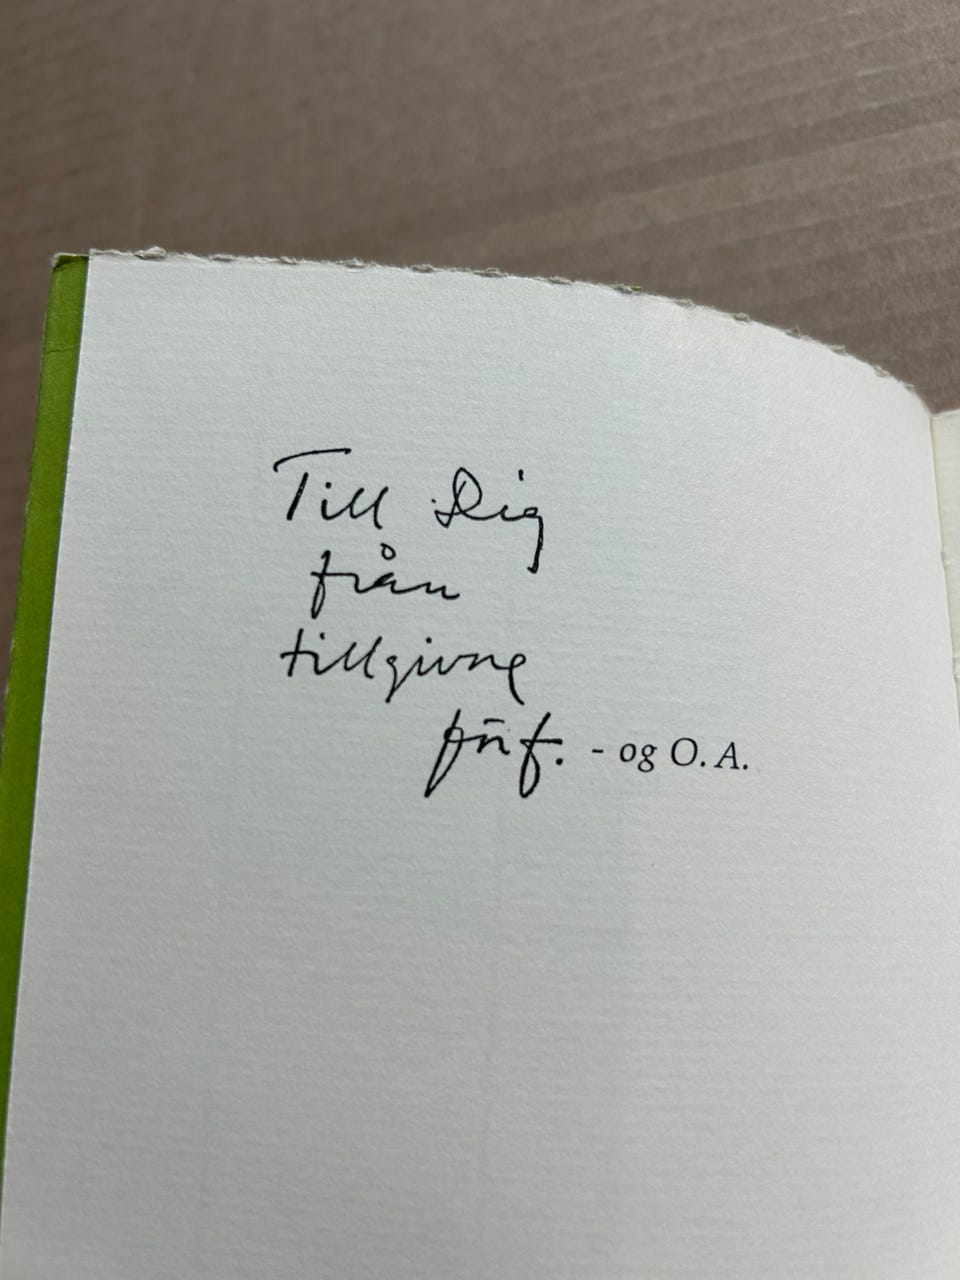 Till Dig
från
tillgivne
förf. - og O. A.